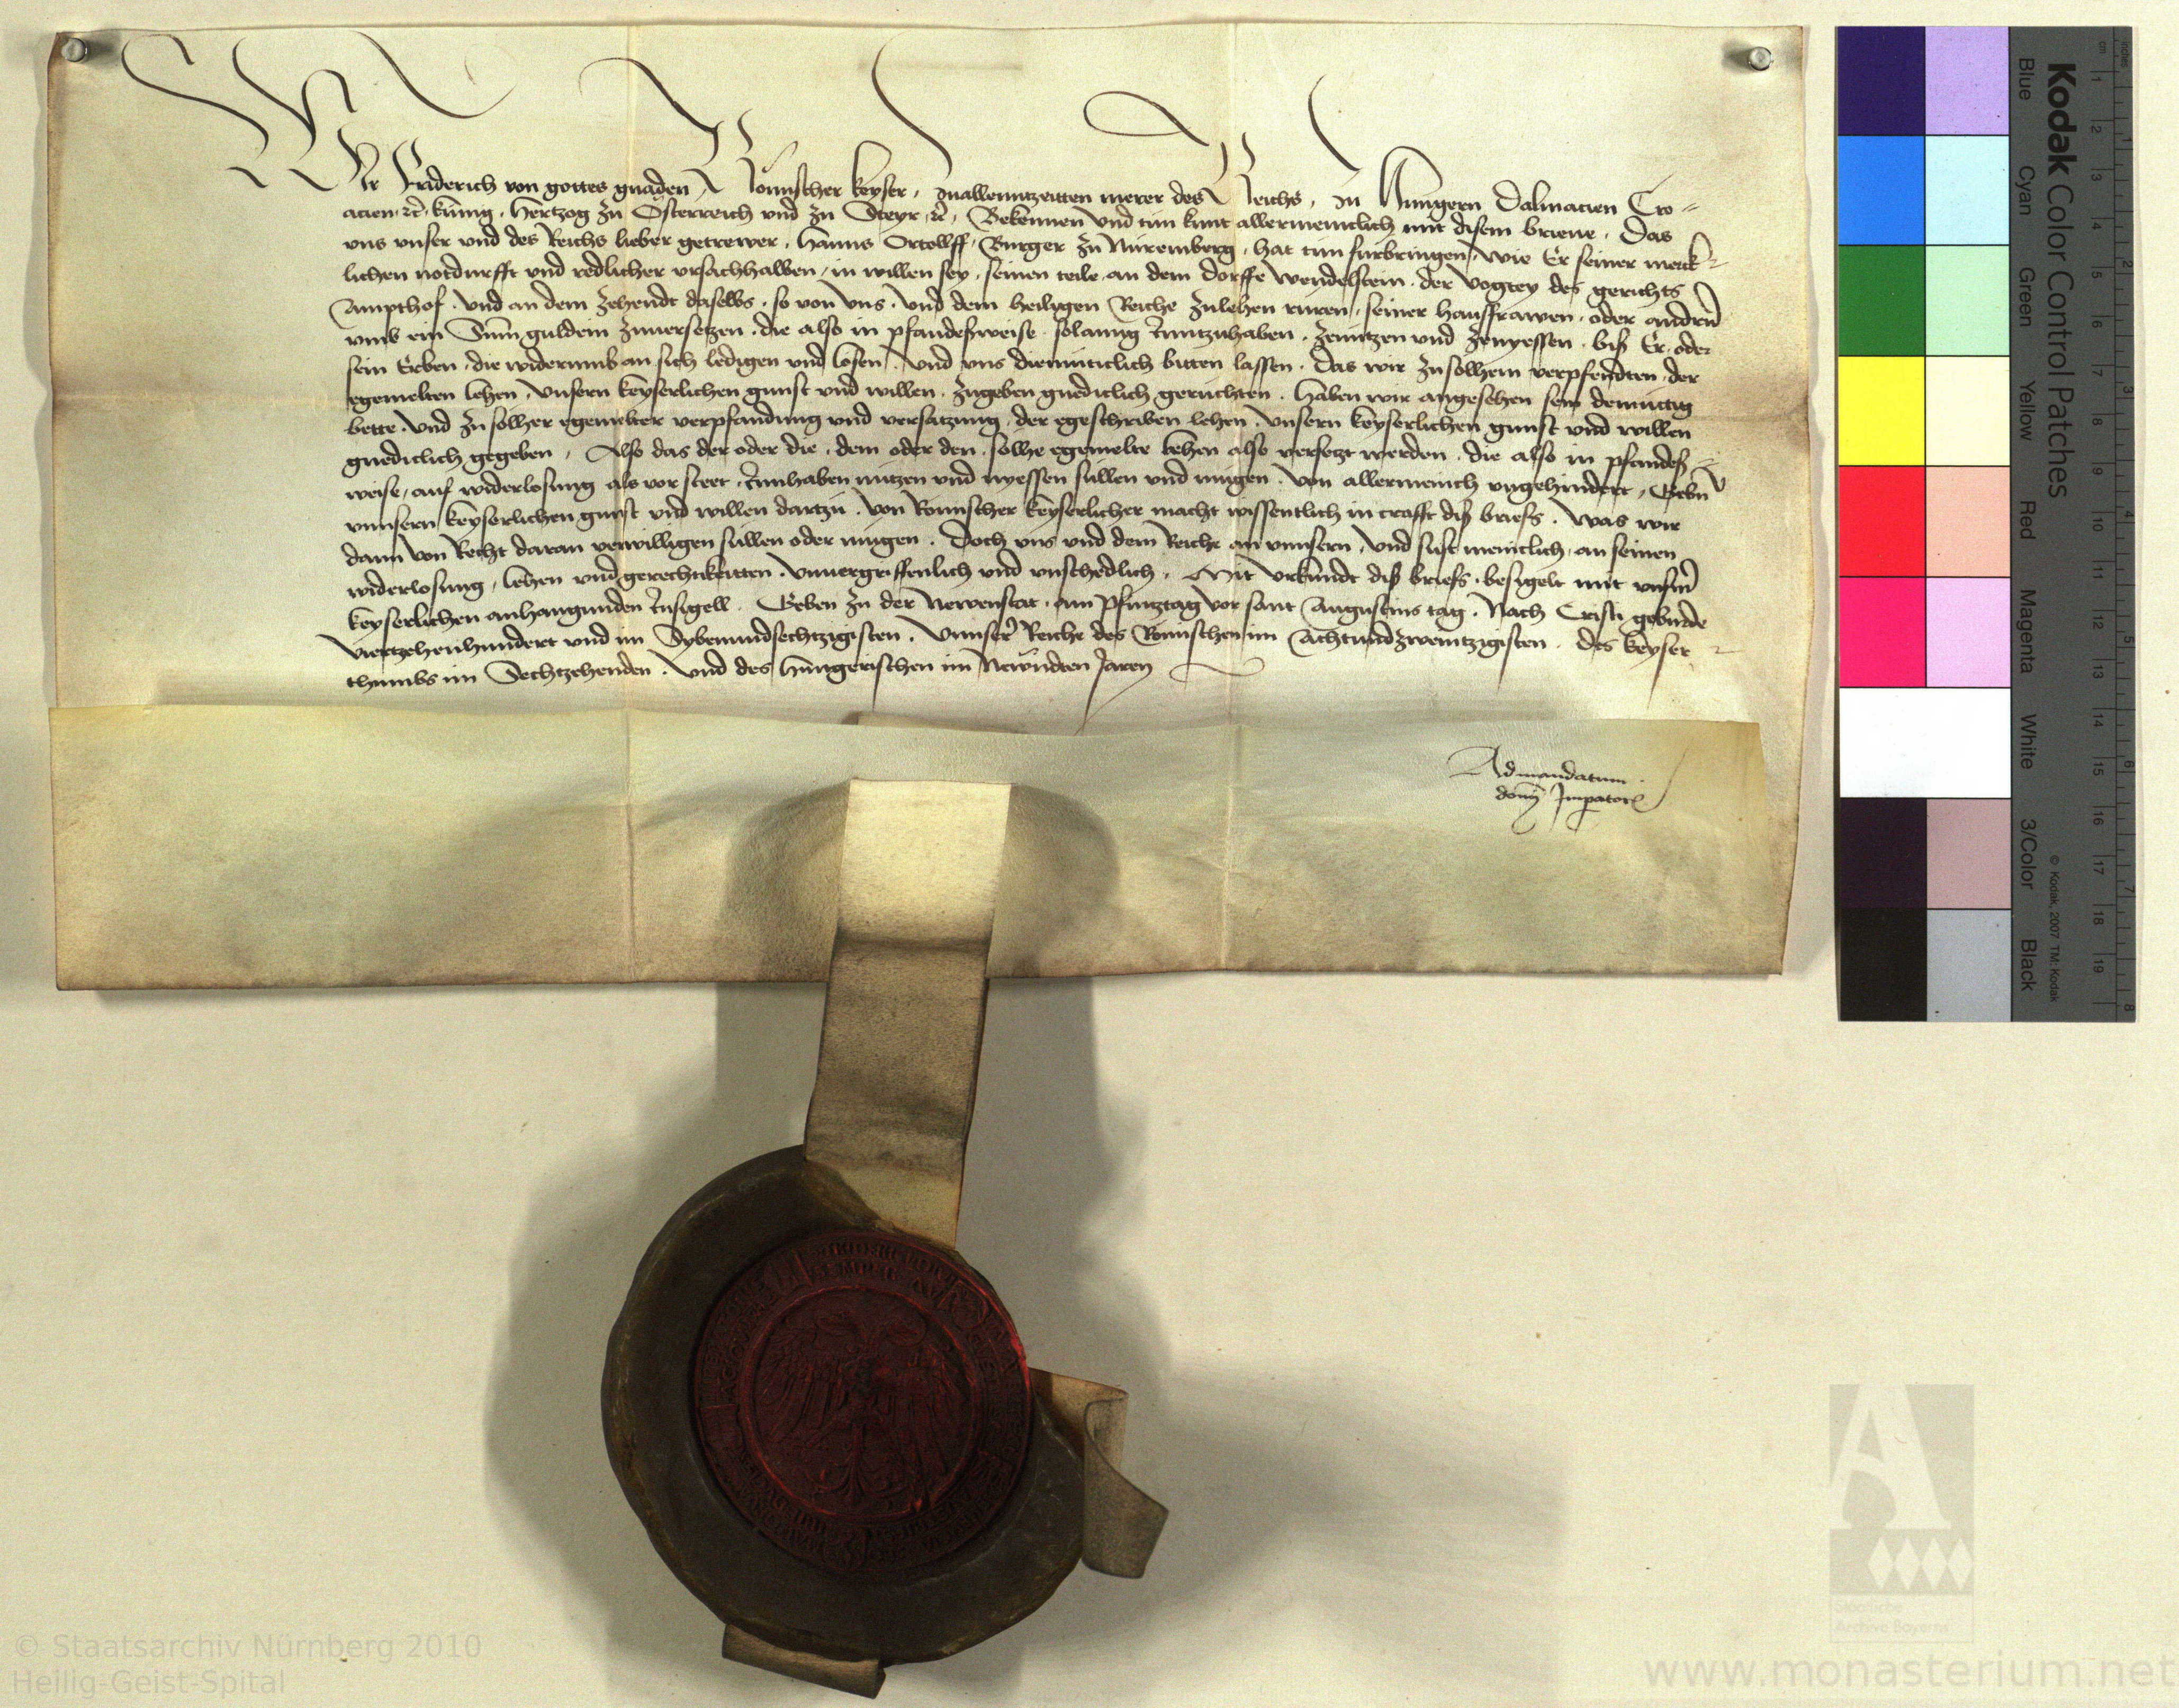 Wir Friderich von gottes gnaden Romischer keyser, zuallennzeitten merer des Reichs, zu Hungern Dalmacien Cro=
acien ꝛc̃ kunig, Hertzog zu Osterreich vnd zu Steyr ꝛc̃, Bekennen vnd tun kunt allermeniclich mit disem brieue, Das
vns vnser vnd des Reichs lieber getrewer, Hanns Ortolff, Burger zu Nuremberg, hat tun furbringen, wie Er seiner merck
lichen notdurfft vnd redlicher vrsachhalben, in willen sey, seinen teile an dem dorffe Wendelstein, der Vogtey des gerichts
Ampthof, vnd an dem Zehendt daselbs, so von vns, vnd dem heiligen Reiche zulehen ruren, seiner hausfrawen, oder andrn
vmb ein Summ guldein zuuersetzen, die also in pfandesweise, solanng Innzuhaben, zenutzen vnd zenyessen, biß Er, oder
sein Erben, die widerumb an sich ledigen vnd losen, vnd vns diemuticlich bitten lassen, Das wir zu solhem verpfendten der
egemelten lehen, vnsern keyserlichen gunst vnd willen, zugeben gnediclich geruchten, Haben wir angesehen sein demuttig
bette, vnd zu solher egemelter verpfandung vnd versatzung, der egeschriben lehen, vnsern keyserlichen gunst vnd willen
gnediclich gegeben, Also das der oder die, dem oder den, solhe egemelte lehen also versetzt werden, die also in pfandeß
weise, auf widerlosung als vor steet, Innhaben nutzen vnd nyessen sullen vnd mugen, von allermenich vngehindert, Gebn
vnnsern keyserlichen gunst vnd willen dartzu, von Romischer keyserlicher macht wissentlich in crafft diß briefs, was wir
dann von Recht daran verwilligen sullen oder mugen, Doch vns vnd dem Reiche an vnnsern, vnd sust meniclich, an seinen
widerlosung, lehen vnd gerechtikeitten, vnuergriffenlich vnd vnschedlich, Mit vrkundt diß briefs, besigelt mit vnserm
keyserlichen anhangunden Insigell, Geben zu der Newenstat, am Pfintztag vor sant Augustins tag, Nach Cristi geburde
viertzehenhundert vnd im Sybenundsechtzigisten, Vnnserr Reiche des Romischen im Achtundzweintzigisten, des keyser
thumbs im Sechtzehenden, vnd des Hungerischen im Newndten Jaren
Ad mandatum
domĩ Imperatoris
Kodak Color Control Patches
© Kodak, 2007 TM: Kodak
Blue Cyan Green Yellow Red Magenta White 3/Color Black
cm 1 2 3 4 5 6 7 8 9 10 11 12 13 14 15 16 17 18 19
inches 1 2 3 4 5 6 7 8
© Staatsarchiv Nürnberg 2010
Heilig-Geist-Spital
Staatliche
Archive Bayerns
www.monasterium.net